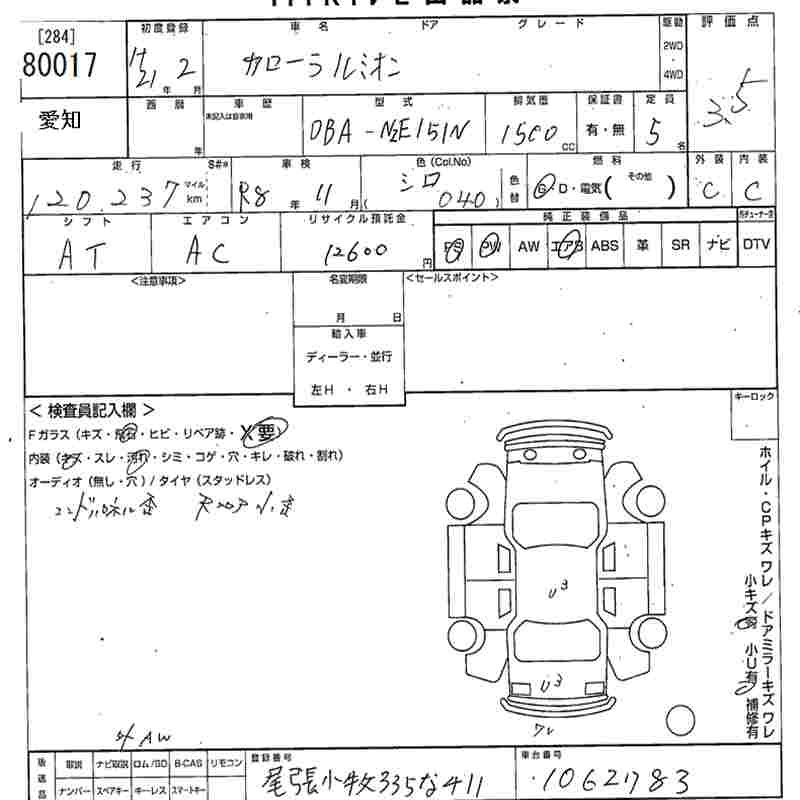 [284]
80017
愛知
初度登録
H21 年 2 月
車名 ドア グレード
カローラルミオン
駆動
2WD
4WD
評価点
3.5
西暦
年
車歴
未記入は自家用
型式
DBA-NZE151N
排気量
1500 CC
保証書
有・無
定員
5 名
走行 S#*
120,237 マイル km
車検
R8 年 11 月
色(Col.No)
シロ (040)
色替
燃料
G・D・電気( その他 )
外装
C
内装
C
シフト
AT
エアコン
AC
リサイクル預託金
12600 円
純正装備品
PS PW AW エアB ABS 革 SR ナビ DTV
<注意事項>
名変期限
月 日
輸入車
ディーラー・並行
左H ・ 右H
<セールスポイント>
<検査員記入欄>
キーロック
Fガラス(キズ・飛石・ヒビ・リペア跡・X要)
内装(キズ・スレ・汚れ・シミ・コゲ・穴・キレ・破れ・割れ)
オーディオ(無し・穴)/タイヤ(スタッドレス)
U3
U3
ワレ
ホイル・CPキズ ワレ/ドアミラーキズ ワレ
小キズ有 小U有 補修有
AW
後送品
取説 ナビ取説 ロム/SD B-CAS リモコン
ナンバー スペアキー キーレス スマートキー
登録番号
尾張小牧335な411
車台番号
1062783